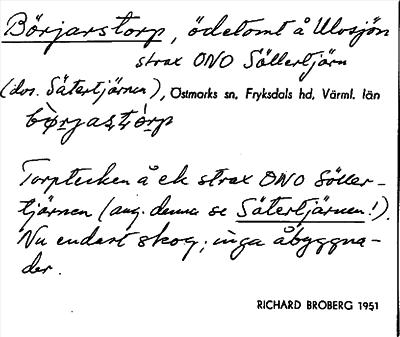 Börjarstorp, ödetomt å Ulvsjön
strax ONO Söllertjärn
(dvs. Sätertjärnen), Östmarks sn, Fryksdals hd, Värml. län
Torptecken å ek strax ONO Söller-
tjärnen (ang. denna se Sätertjärnen!).
Nu endast skog; inga åbyggna-
der.
RICHARD BROBERG 1951